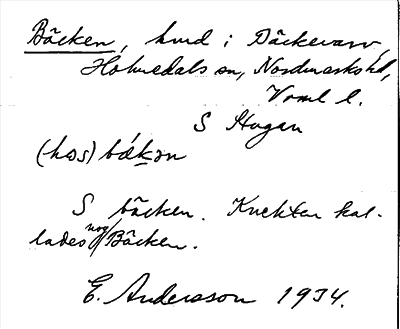 Bäcken, hmd i Däckevarv,
Holmedals sn, Nordmarks hd,
Vrml l.
S Hagan
(hos) bækən
S bäcken. Knekten kal-
lades nog Bäcken.
E. Andersson 1934.